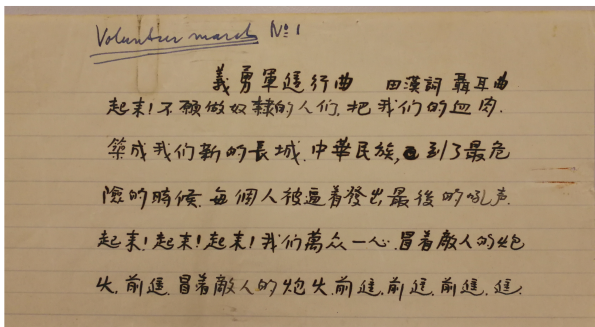 Volunteer march №1
義勇軍進行曲 田漢詞 聶耳曲
起来!不願做奴隸的人们,把我们的血肉.
築成我们新的長城.中華民族,到了最危
險的時候.每個人被逼着發出最後的吼声.
起来!起来!起来!我们萬众一心.冒着敵人的炮
火.前進.冒着敵人的炮火.前進.前進.前進.進.